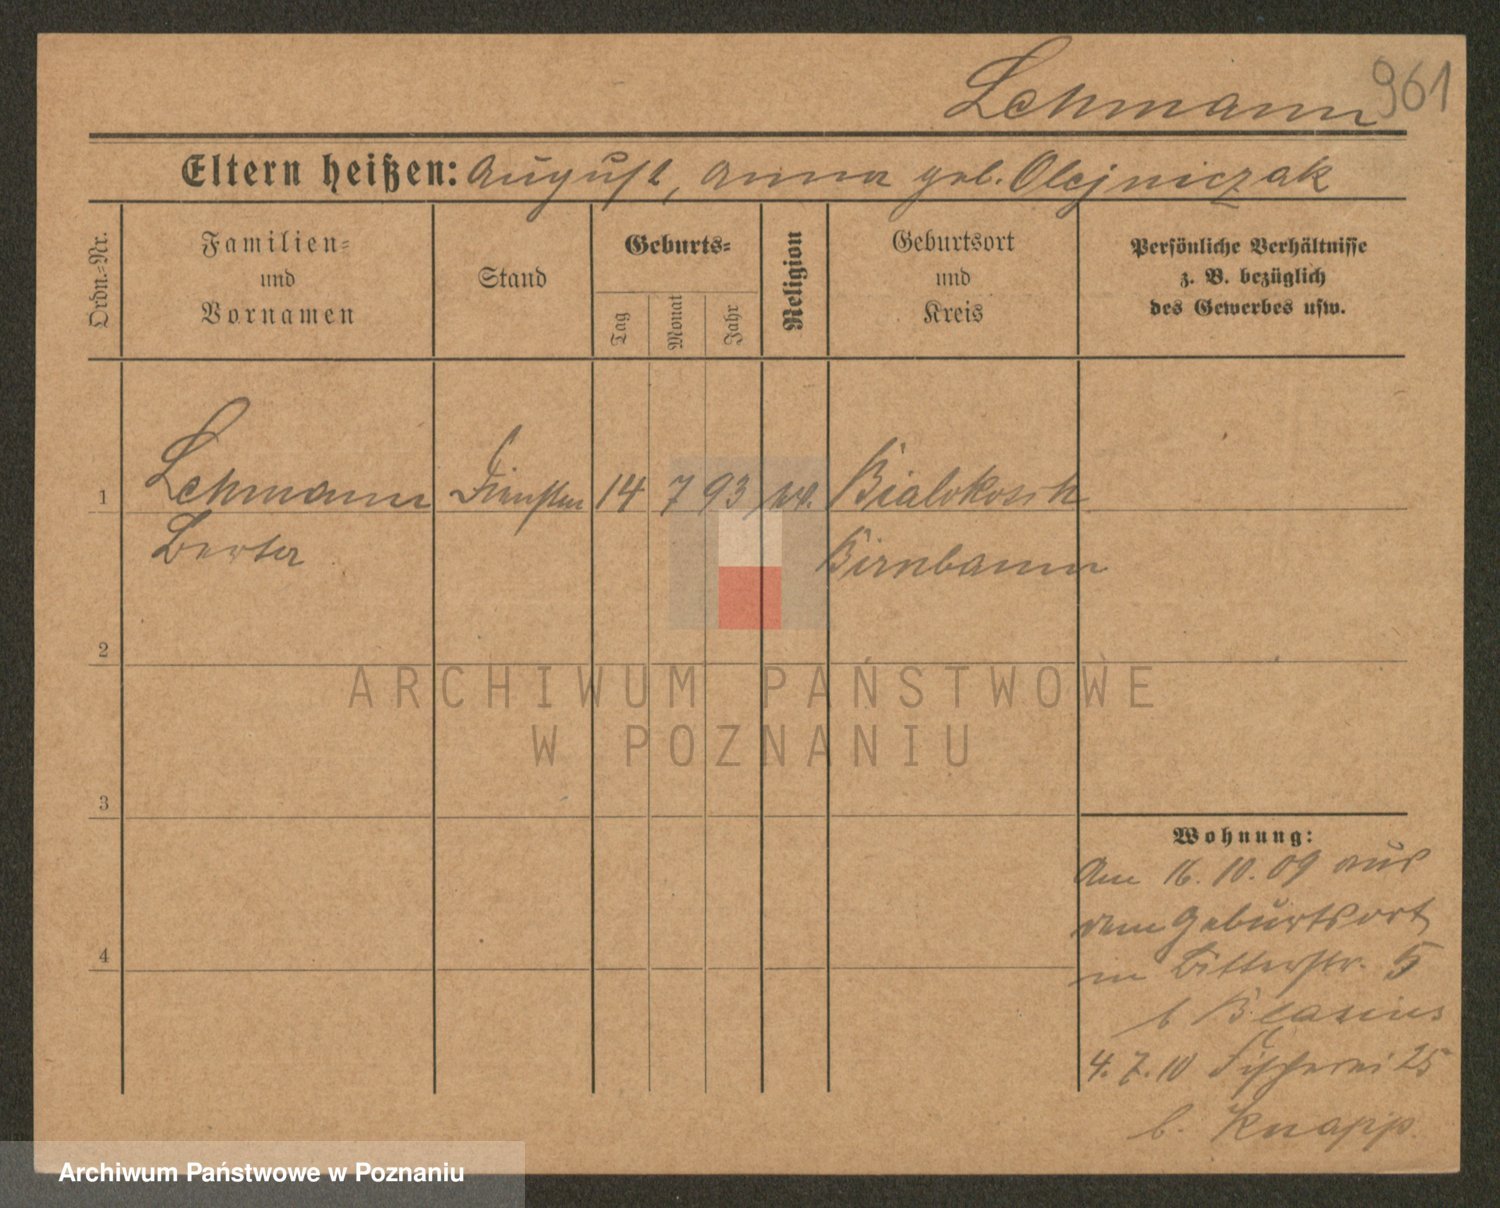 Lehmann 961
Eltern heißen: August, Anna geb. Olejniczak
Ordn.-Nr.
Familien-
und
Vornamen
Stand
Geburts-
Tag
Monat
Jahr
Religion
Geburtsort
und
Kreis
Persönliche Verhältnisse
z. B. bezüglich
des Gewerbes usw.
1 Lehmann 14 7 93 Bialokosch
Birnbaum
2
ARCHIWUM PAŃSTWOWE
W POZNANIU
3
Wohnung:
Am 16.10.09 aus
dem Geburtsort
in Bitterstr. 5
b Blasius
4
4.7.10 Fischerei 25
b. Knapp.
Archiwum Państwowe w Poznaniu